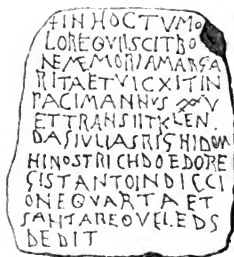 +INHOCTVMO
LOREQVIISCITBO
NEMEMORIAMARGA
RITAETVICXITIN
PACIMANNVS XXV
ETTRANSIITKLEN
DASIVLIASRIGHIDOM
HINOSTRICHDOEDORE
GISTANTOINDICCI
ONEQVARTAET
SAHTAREOVELEDS
DEDIT